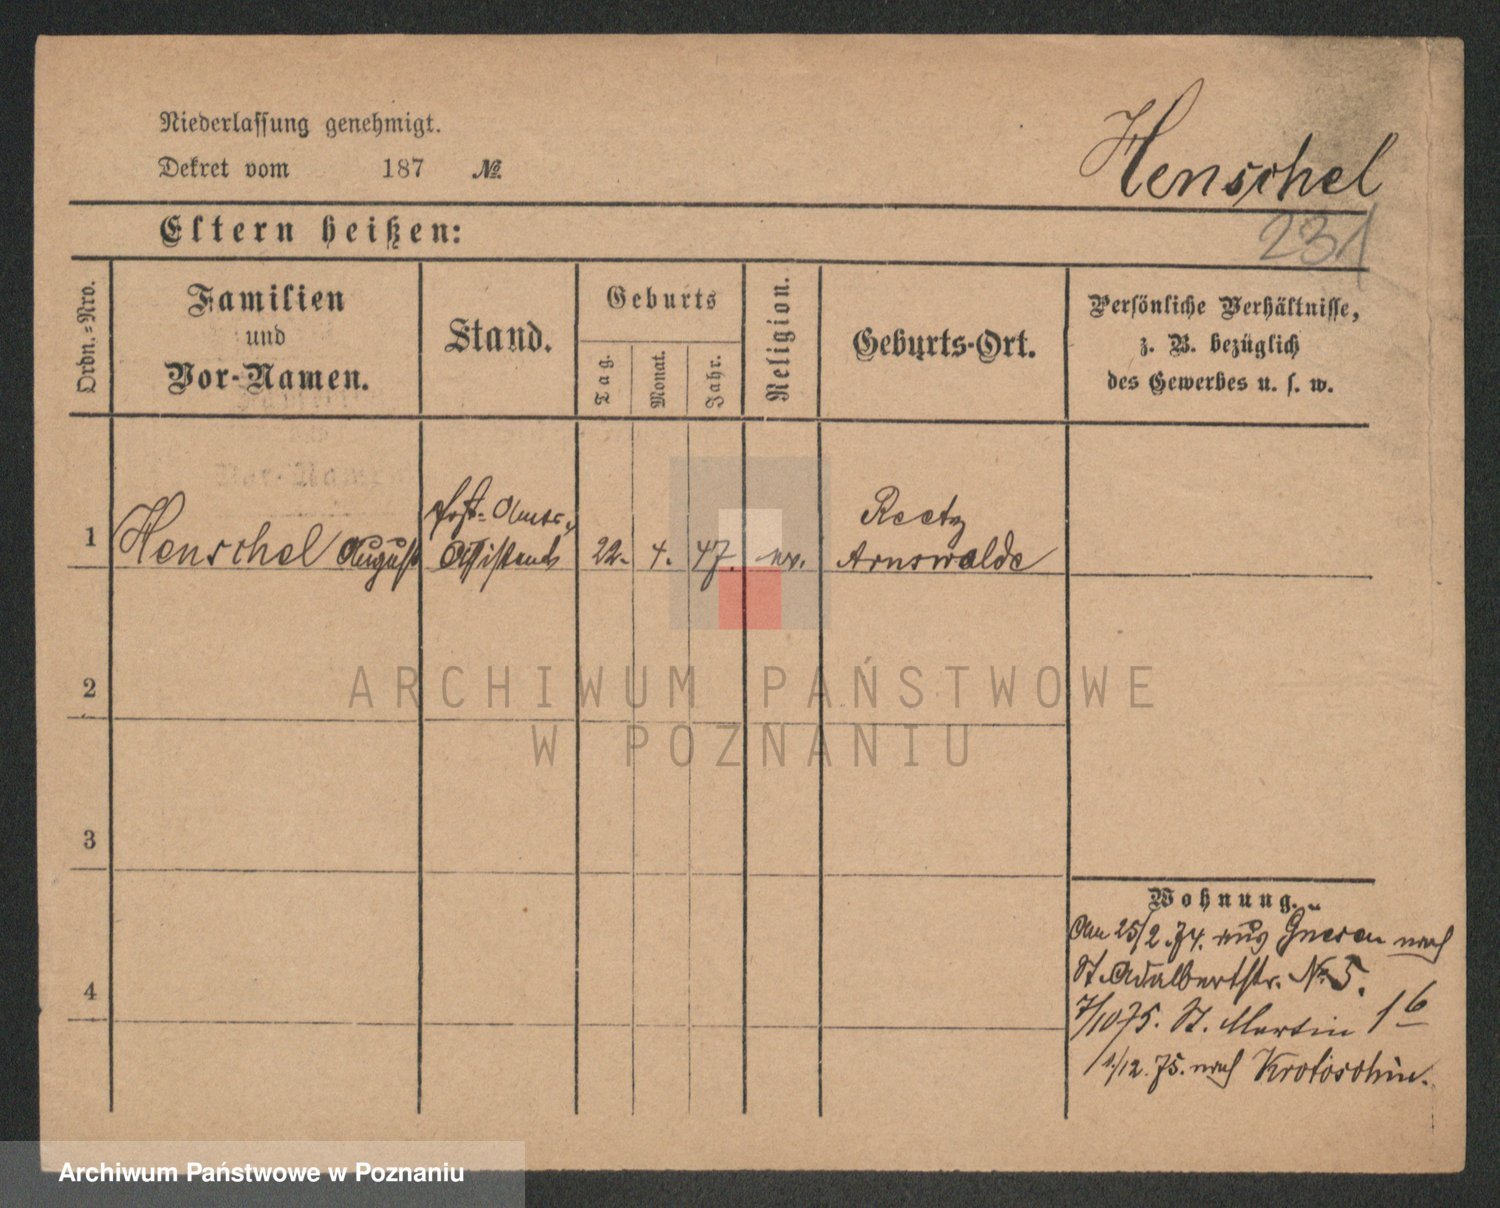 Niederlassung genehmigt.
Dekret vom 187 №
Henschel
231
Eltern heißen:
Ordn.=Nro.
Familien
und
Vor-Namen.
Stand.
Geburts
Tag.
Monat.
Jahr.
Religion.
Geburts-Ort.
Persönliche Verhältnisse,
z. B. bezüglich
des Gewerbes u. s. w.
Post-Amts-
Reetz
1 Henschel August Assistent 22. 4. 47. ev. Arnswalde
2
3
4
Wohnung.
Am 25/2.74. aus Gnesen nach
St. Adalbertstr. № 5.
7/10 75. St. Martin 16
1/12.75. nach Krotoschin.
ARCHIWUM PAŃSTWOWE
W POZNANIU
Archiwum Państwowe w Poznaniu